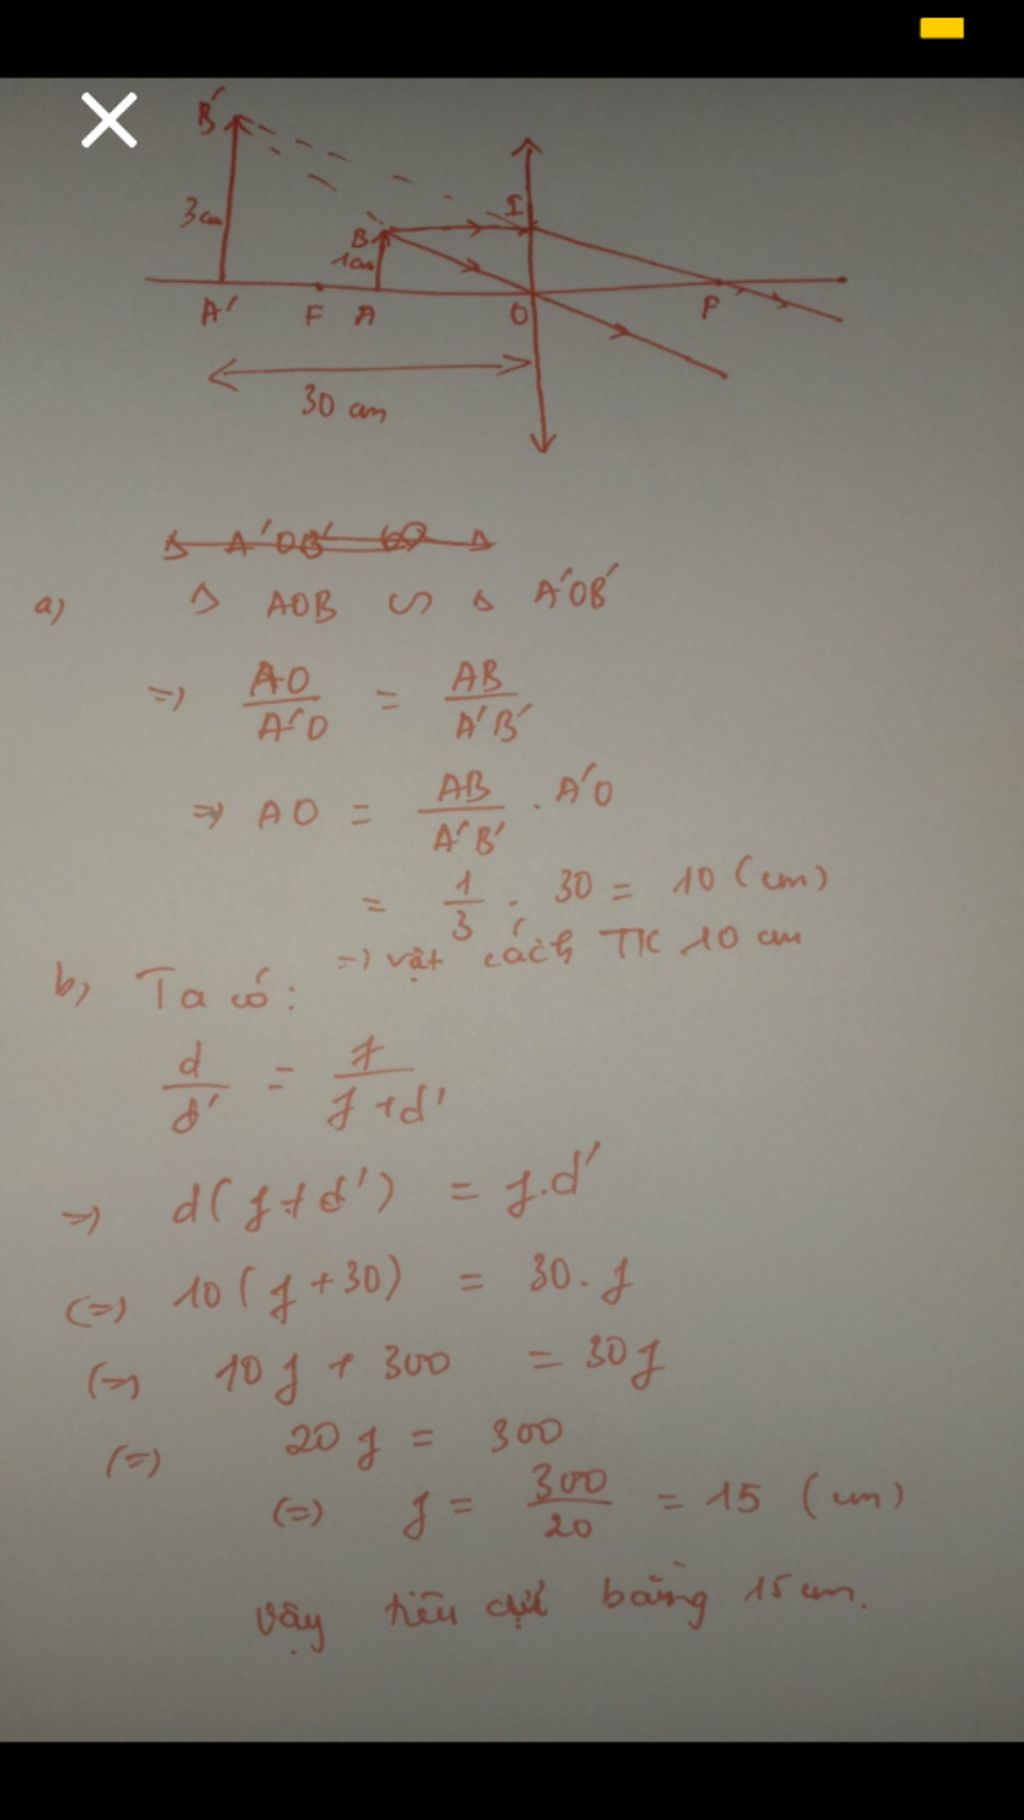 B'
3cm
B
1cm
I
A'
F
A
O
F
30 cm
Δ A'OB' ∽ Δ
a) Δ AOB ∽ Δ A'OB'
=) AO/A'O = AB/A'B'
=) AO = AB/A'B' . A'O
= 1/3 . 30 = 10 (cm)
=) vật cách TK 10 cm
b) Ta có:
d/d' = f/f+d'
=) d(f+d') = f.d'
(=) 10(f+30) = 30.f
(=) 10f + 300 = 30f
(=) 20f = 300
(=) f = 300/20 = 15 (cm)
vậy tiêu cự bằng 15cm.